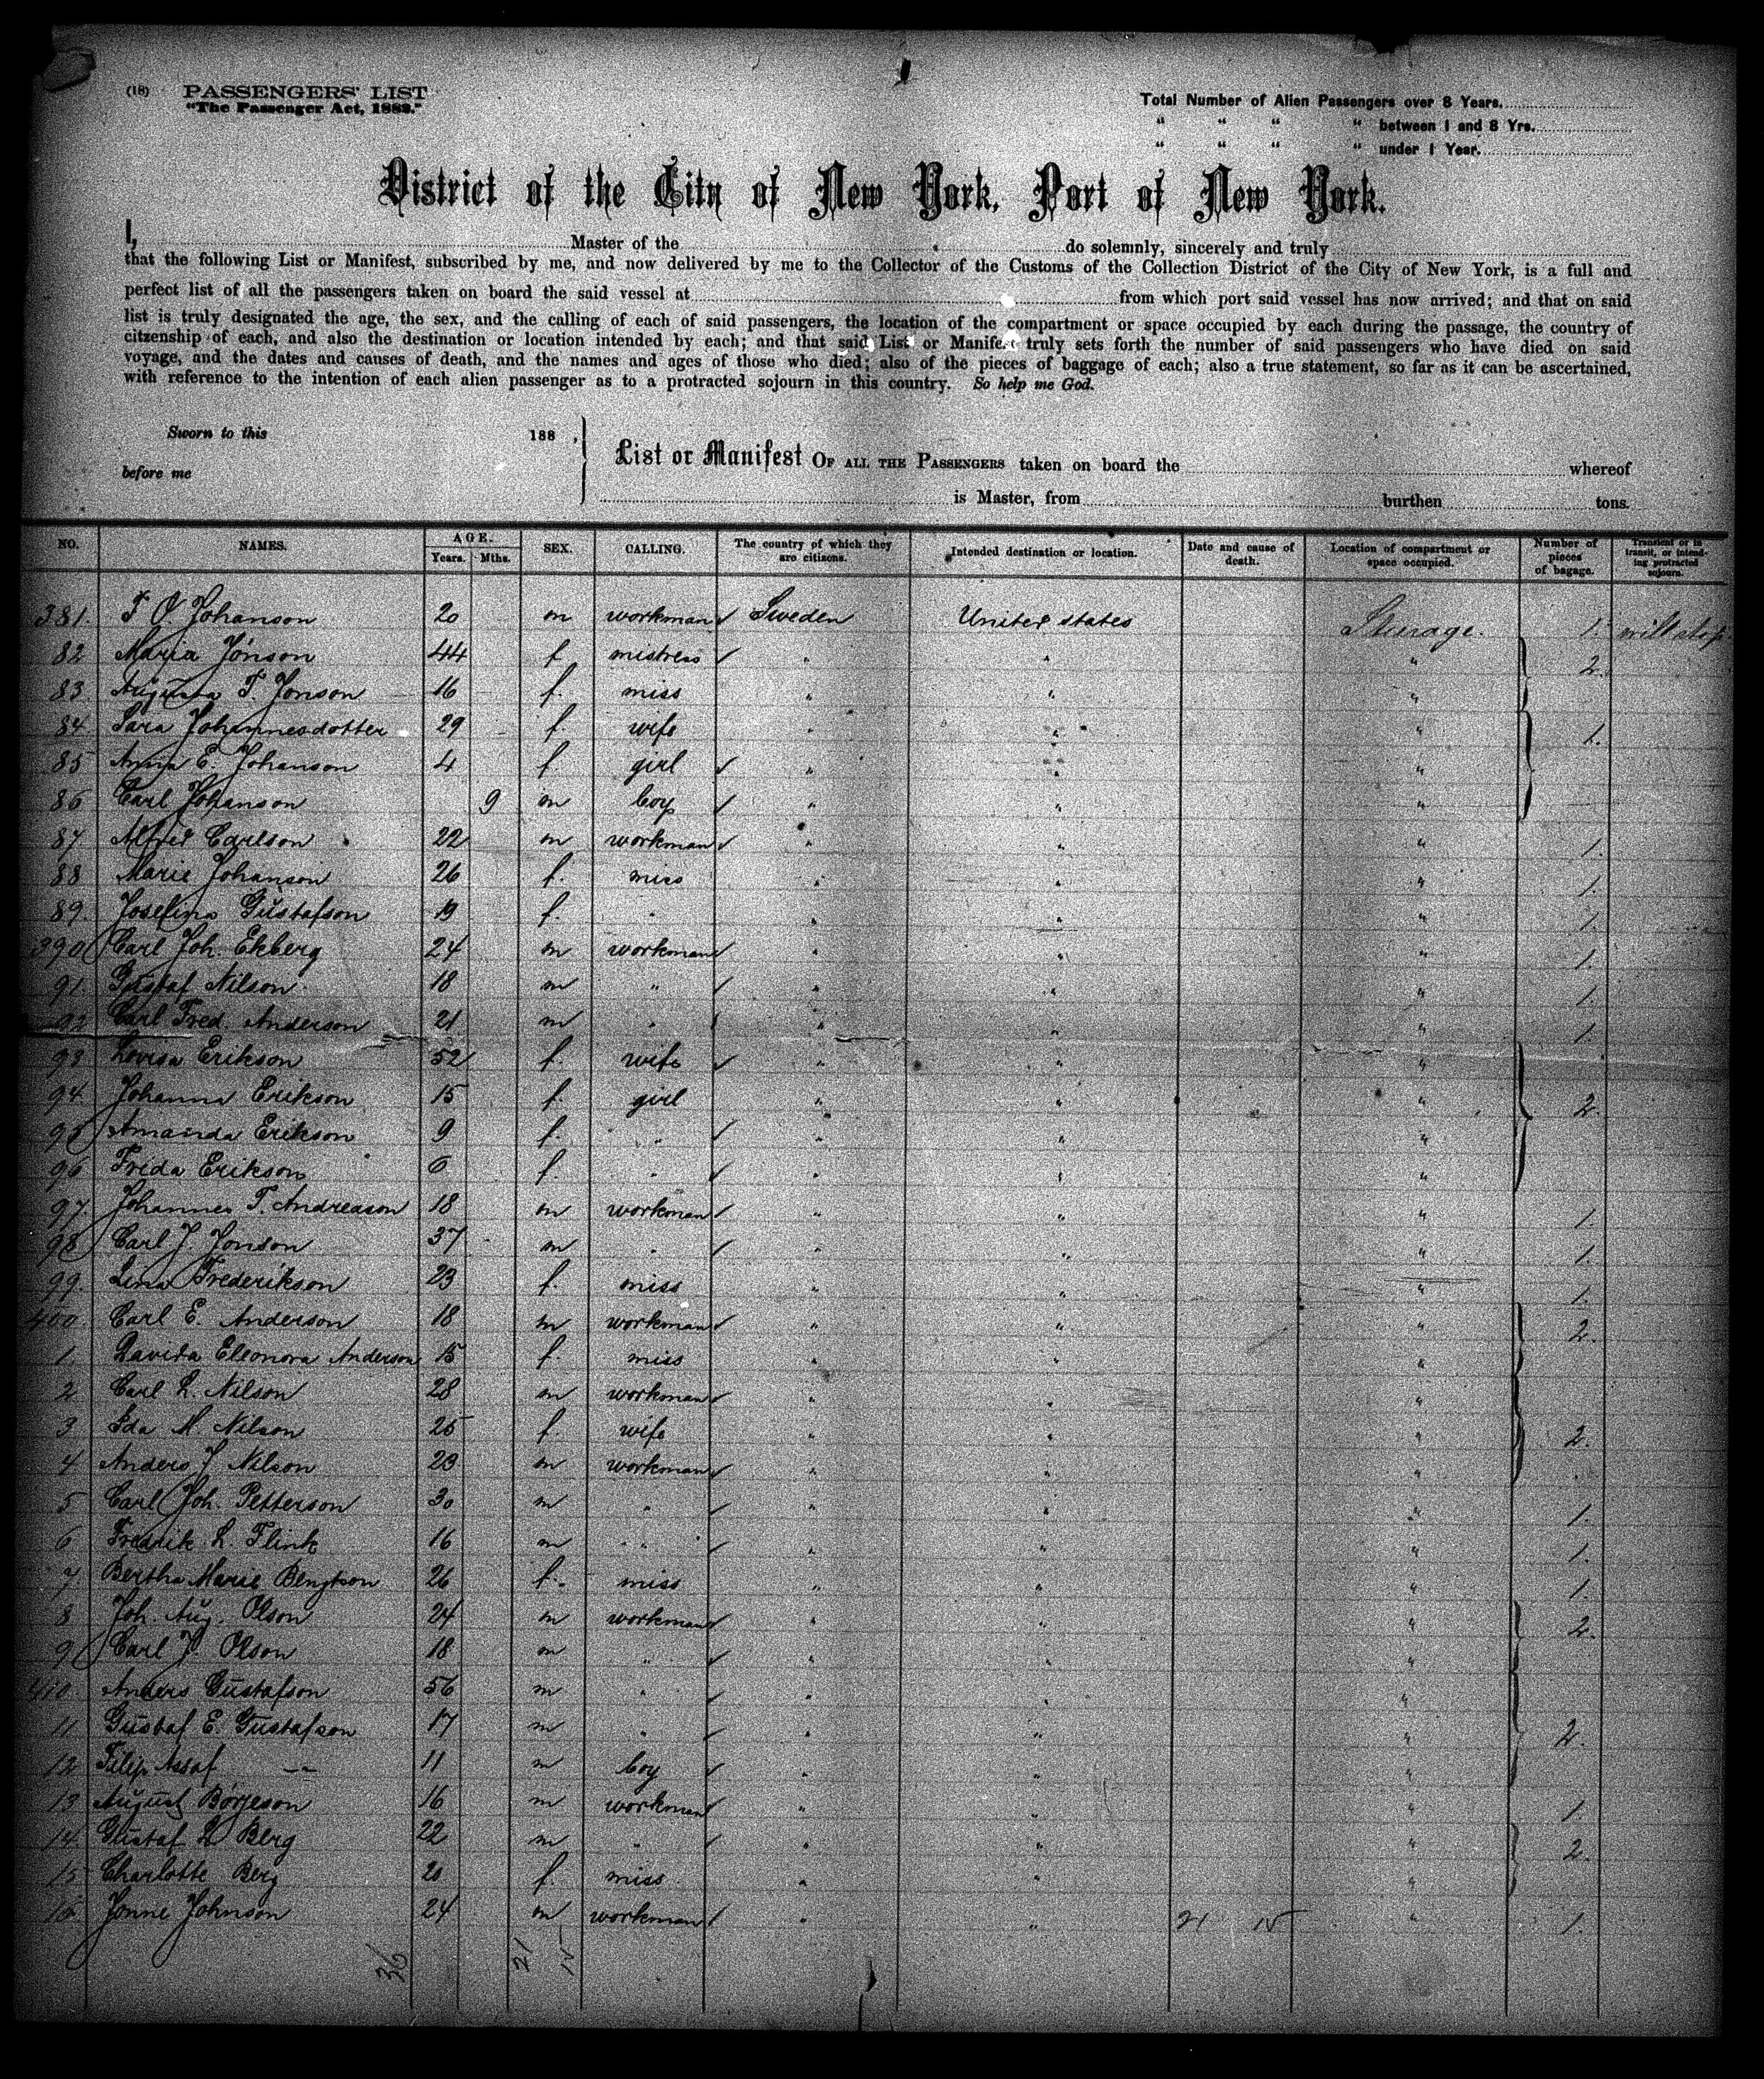 (18) PASSENGERS' LIST
"The Passenger Act, 1882."
Total Number of Alien Passengers over 8 Years.
" " " " between 1 and 8 Yrs.
" " " " under 1 Year.
District of the City of New York, Port of New York.
I, Master of the do solemnly, sincerely and truly
that the following List or Manifest, subscribed by me, and now delivered by me to the Collector of the Customs of the Collection District of the City of New York, is a full and
perfect list of all the passengers taken on board the said vessel at from which port said vessel has now arrived; and that on said
list is truly designated the age, the sex, and the calling of each of said passengers, the location of the compartment or space occupied by each during the passage, the country of
citzenship of each, and also the destination or location intended by each; and that said List or Manifest truly sets forth the number of said passengers who have died on said
voyage, and the dates and causes of death, and the names and ages of those who died; also of the pieces of baggage of each; also a true statement, so far as it can be ascertained,
with reference to the intention of each alien passenger as to a protracted sojourn in this country. So help me God.
Sworn to this 188 ,
before me
List or Manifest OF ALL THE PASSENGERS taken on board the whereof
is Master, from burthen tons.
NO. NAMES. AGE. Years. Mths. SEX. CALLING. The country of which they are citizens. Intended destination or location. Date and cause of death. Location of compartment or space occupied. Number of pieces of bagage. Transient or in transit, or intending protracted sojourn.
381. F O. Johanson 20 m workman Sweden United states Steurage. 1. will stop
82 Maria Jonson 44 f mistress " " " 2.
83 Augusta F. Jonson 16 f. miss " " "
84. Sara Johannesdotter 29 f. wife " " " 1.
85 Anna E. Johanson 4 f. girl " " "
86 Carl Johanson 9 m boy " " "
87 Alfred Carlson 22 m workman " " " 1.
88 Marie Johanson 26 f. miss " " " 1.
89. Josefina Gustafson 19 f. " " " " 1.
390 Carl Joh. Ekberg 24 m workman " " " 1.
91. Gustaf Nilson 18 m " " " " 1.
92 Carl Fred. Anderson 21 m " " " " 1.
93 Lovisa Erikson 52 f. wife " " "
94. Johanna Erikson 15 f. girl " " " 2.
95 Amanda Erikson 9 f. " " " "
96 Frida Erikson 6 f. " " " "
97. Johannes F. Andreason 18 m workman " " " 1.
98 Carl J. Jonson 37 m " " " " 1.
99. Lina Frederikson 23 f. miss " " " 1.
400. Carl E. Anderson 18 m workman " " " 2.
1. Davida Eleonora Anderson 15 f. miss " " "
2 Carl L. Nilson 28 m workman " " "
3 Ida M. Nilson 25 f. wife " " " 2.
4 Anders J Nilson 23 m workman " " "
5 Carl Joh. Petterson 30 m " " " " 1.
6 Fredrik L. Flink 16 m " " " " 1.
7. Bertha Marie Bengtson 26 f. miss " " " 1.
8 Joh. Aug. Olson 24 m workman " " " 2.
9 Carl J. Olson 18 m " " " "
410. Anders Gustafson 56 m " " " "
11 Gustaf E. Gustafson 17 m " " " " 2.
12 Filip Assaf 11 m boy " " "
13 August Börjeson 16 m workman " " " 1.
14. Gustaf L Berg 22 m " " " " 2.
15 Charlotte Berg 20 f. miss " " "
16. Jonne Johnson 24 m workman " " 21 15 " 1.
36 21 15